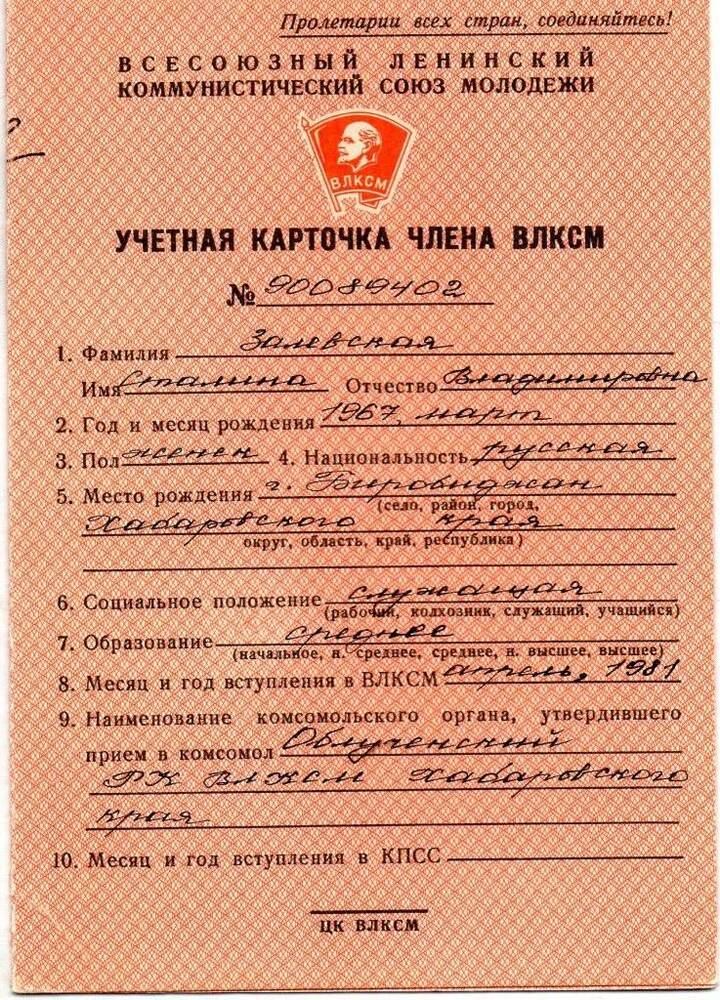 Пролетарии всех стран, соединяйтесь!
ВСЕСОЮЗНЫЙ ЛЕНИНСКИЙ
КОММУНИСТИЧЕСКИЙ СОЮЗ МОЛОДЕЖИ
ВЛКСМ
УЧЕТНАЯ КАРТОЧКА ЧЛЕНА ВЛКСМ
№ 90089402
1. Фамилия Залевская
Имя Сталина Отчество Владимировна
2. Год и месяц рождения 1967, март
3. Пол женск 4. Национальность русская
5. Место рождения г. Биробиджан
(село, район, город,
Хабаровского края
округ, область, край, республика)
6. Социальное положение служащая
(рабочий, колхозник, служащий, учащийся)
7. Образование среднее
(начальное, н. среднее, среднее, н. высшее, высшее)
8. Месяц и год вступления в ВЛКСМ апрель, 1981
9. Наименование комсомольского органа, утвердившего
прием в комсомол Облученский
РК ВЛКСМ Хабаровского
края
10. Месяц и год вступления в КПСС
ЦК ВЛКСМ